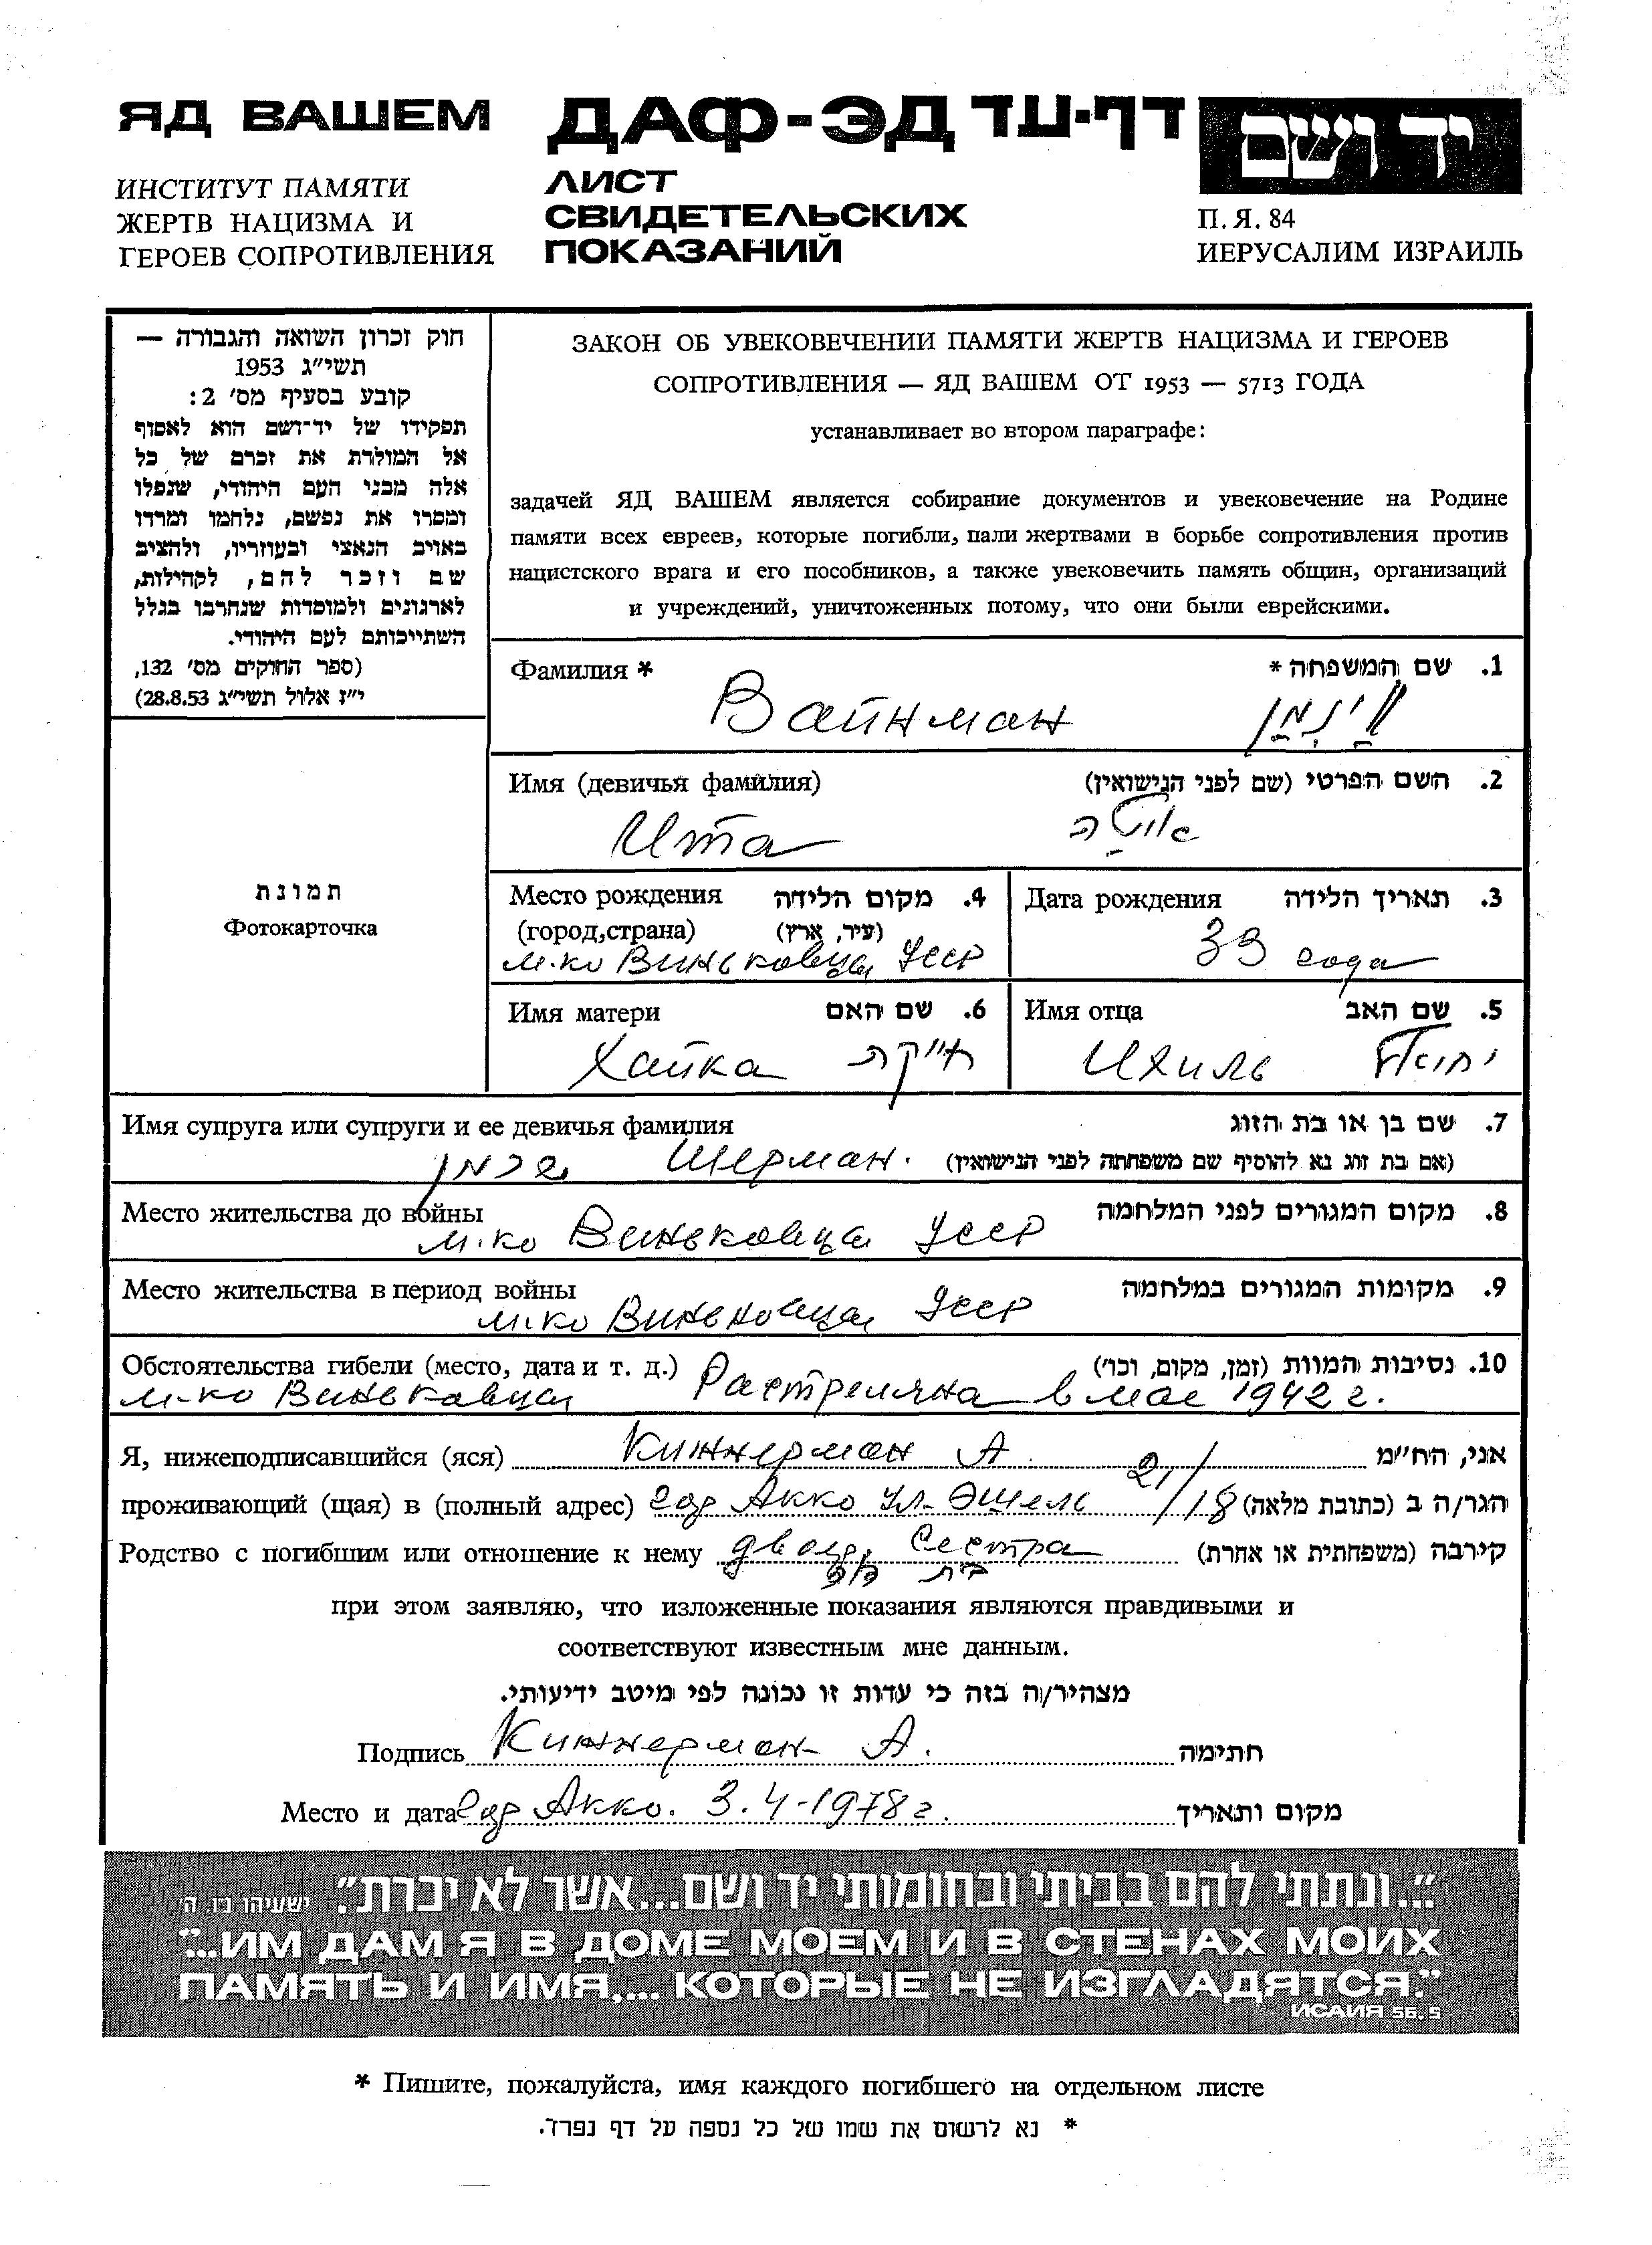 ЯД ВАШЕМ
ИНСТИТУТ ПАМЯТИ
ЖЕРТВ НАЦИЗМА И
ГЕРОЕВ СОПРОТИВЛЕНИЯ
ДАФ-ЭД דף-עד
ЛИСТ
СВИДЕТЕЛЬСКИХ
ПОКАЗАНИЙ
יד ושם
П. Я. 84
ИЕРУСАЛИМ ИЗРАИЛЬ
חוק זכרון השואה והגבורה —
תשי״ג 1953
קובע בסעיף מס׳ 2:
תפקידו של יד-ושם הוא לאסוף
אל המולדת את זכרם של כל
אלה מבני העם היהודי, שנפלו
ומסרו את נפשם, נלחמו ומרדו
באויב הנאצי ובעוזריו, ולהציב
שם וזכר להם, לקהילות,
לארגונים ולמוסדות שנחרבו בגלל
השתייכותם לעם היהודי.
(ספר החוקים מס׳ 132,
י״ז אלול תשי״ג 28.8.53)
ЗАКОН ОБ УВЕКОВЕЧЕНИИ ПАМЯТИ ЖЕРТВ НАЦИЗМА И ГЕРОЕВ
СОПРОТИВЛЕНИЯ — ЯД ВАШЕМ ОТ 1953 — 5713 ГОДА
устанавливает во втором параграфе:
задачей ЯД ВАШЕМ является собирание документов и увековечение на Родине
памяти всех евреев, которые погибли, пали жертвами в борьбе сопротивления против
нацистского врага и его пособников, а также увековечить память общин, организаций
и учреждений, уничтоженных потому, что они были еврейскими.
תמונת
Фотокарточка
Фамилия * 1. שם המשפחה *
Вайнман וַינְמַן
Имя (девичья фамилия) 2. השם הפרטי (שם לפני הנישואין)
Ита איטַה
Место рождения 4. מקום הלידה
(город,страна) (עיר, ארץ)
м-ко Виньковцы Усср
Дата рождения 3. תאריך הלידה
33 года
Имя матери 6. שם האם
Хайка חייקה
Имя отца 5. שם האב
Ихиль יחיאל
Имя супруга или супруги и ее девичья фамилия 7. שם בן או בת הזוג
שרמן Шерман. (אם בת זוג נא להוסיף שם משפחתה לפני הנישואין)
Место жительства до войны 8. מקום המגורים לפני המלחמה
м-ко Виньковцы Усср
Место жительства в период войны 9. מקומות המגורים במלחמה
м-ко Виньковцы Усср
Обстоятельства гибели (место, дата и т. д.) 10. נסיבות המוות (זמן, מקום, וכו׳)
м-ко Виньковцы Растреляна в мае 1942 г.
Я, нижеподписавшийся (яся) Кижнерман А. אני, הח״מ
проживающий (щая) в (полный адрес) гор Акко ул. Эшель 21/18 הגר/ה ב (כתובת מלאה)
Родство с погибшим или отношение к нему двоюр. Сестра קירבה (משפחתית או אחרת)
בת דוד
при этом заявляю, что изложенные показания являются правдивыми и
соответствуют известным мне данным.
מצהיר/ה בזה כי עדות זו נכונה לפי מיטב ידיעותי.
Подпись Кижнерман А. חתימה
Место и дата гор Акко. 3.4-1978 г. מקום ותאריך
״...ונתתי להם בביתי ובחומותי יד ושם...אשר לא יכרת״. ישעיהו נ״ו ה׳
"...ИМ ДАМ Я В ДОМЕ МОЕМ И В СТЕНАХ МОИХ
ПАМЯТЬ И ИМЯ,... КОТОРЫЕ НЕ ИЗГЛАДЯТСЯ."
ИСАИЯ 56.5
* Пишите, пожалуйста, имя каждого погибшего на отдельном листе
* נא לרשום את שמו של כל נספה על דף נפרד.